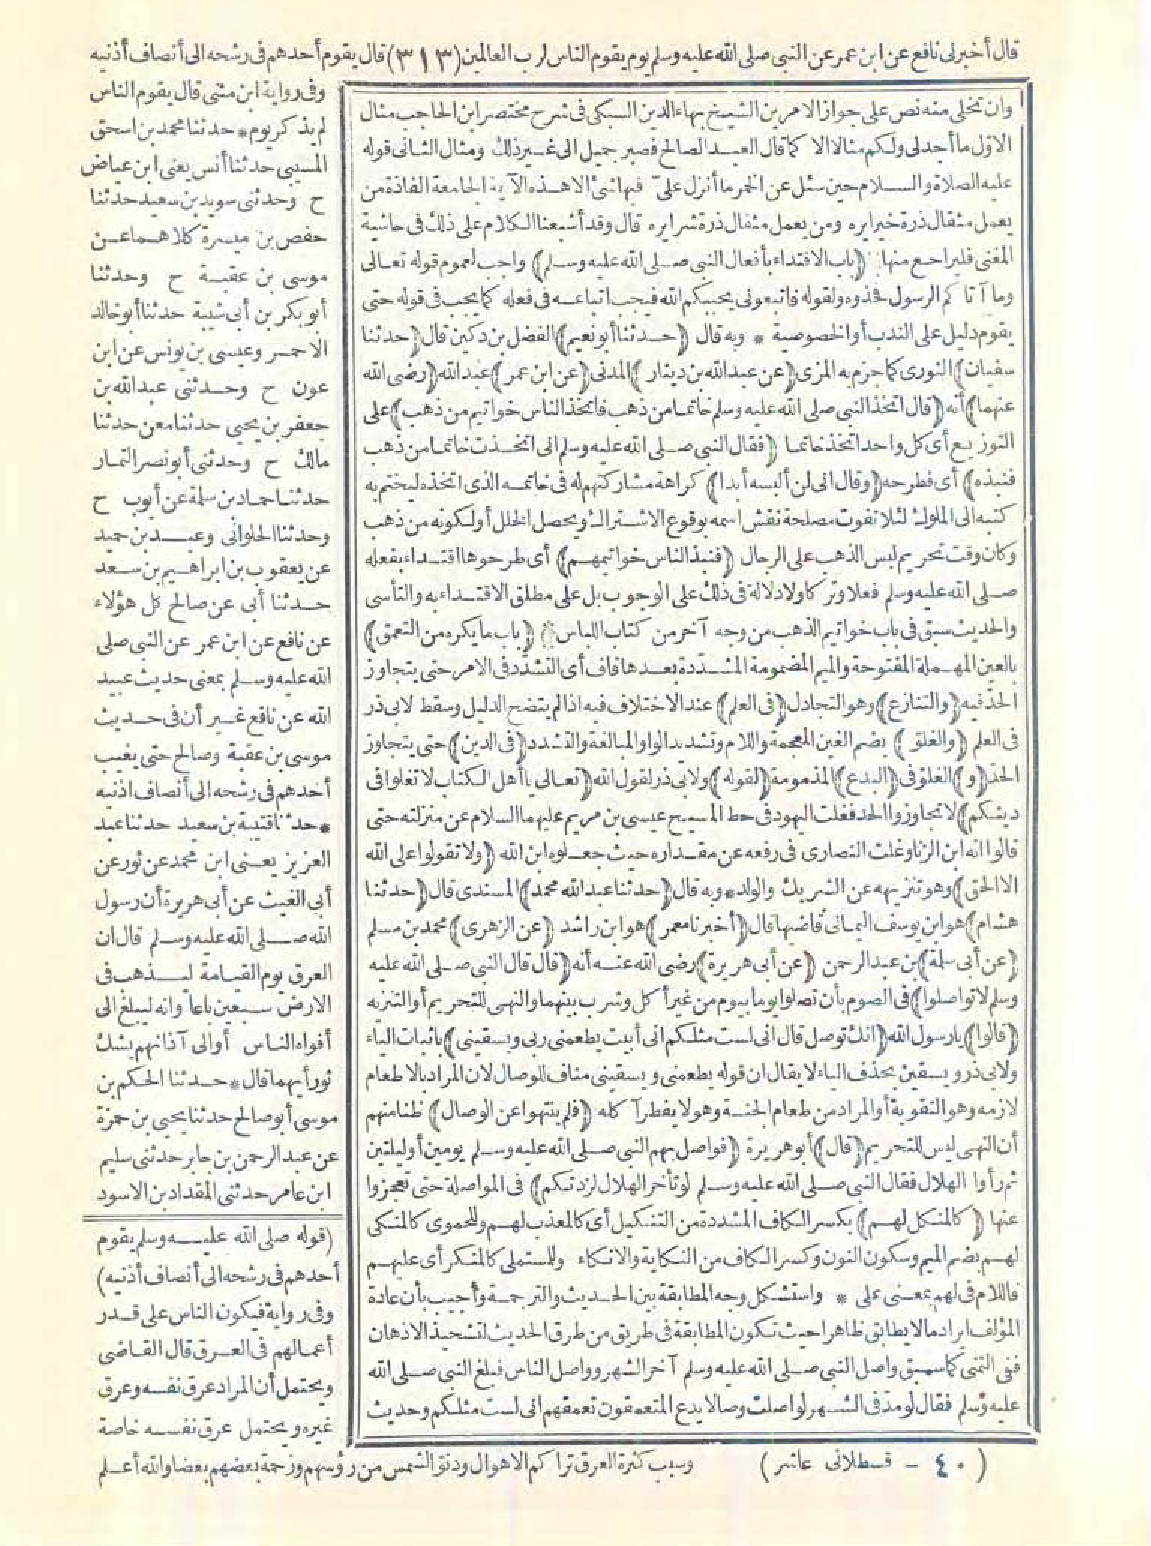 قال أخبرنى نافع عن ابن عمر عن النبي صلى الله عليه وسلم يوم يقوم الناس لرب العالمين (٣١٣) قال يقوم أحدهم فى رشحه الى أنصاف أذنيه
وان تخلى منه نص على جواز الامرين الشيخ بهاء الدين السبكى فى شرح مختصر ابن الحاجب مثال
الاول ما أجد لى ولكم مثالا الا كما قال العبد الصالح فصبر جميل الى غير ذلك ومثال الثانى قوله
عليه الصلاة والسلام حين سئل عن الحمر ما أنزل علىّ فيها شئ الا هذه الآية الجامعة الفاذة من
يعمل مثقال ذرة خيرا يره ومن يعمل مثقال ذرة شرا يره قال وقد أشبعنا الكلام على ذلك فى حاشية
المغنى فليراجع منها (باب الاقتداء بأفعال النبي صلى الله عليه وسلم) واجب لعموم قوله تعالى
وما آتاكم الرسول فخذوه ولقوله فاتبعونى يحببكم الله فيجب اتباعه فى فعله كما يجب فى قوله حتى
يقوم دليل على الندب أو الخصوصية * وبه قال (حدثنا أبو نعيم) الفضل بن دكين قال (حدثنا
سفيان) الثورى كما جزم به المزى (عن عبد الله بن دينار) المدنى (عن ابن عمر) عبد الله (رضى الله
عنهما) أنه (قال اتخذ النبي صلى الله عليه وسلم خاتما من ذهب فاتخذ الناس خواتيم من ذهب) على
التوزيع أى كل واحد اتخذ خاتما (فقال النبي صلى الله عليه وسلم انى اتخذت خاتما من ذهب
فنبذه) أى فطرحه (وقال انى لن ألبسه أبدا) كراهة مشاركتهم له فى خاتمه الذى اتخذه ليختم به
كتبه الى الملوك لئلا تفوت مصلحة نقش اسمه بوقوع الاشتراك ويحصل الخلل أو لكونه من ذهب
وكان وقت تحريم لبس الذهب على الرجال (فنبذ الناس خواتيمهم) أى طرحوها اقتداء بفعله
صلى الله عليه وسلم فعلا وتركا ولا دلالة فى ذلك على الوجوب بل على مطلق الاقتداء به والتأسى
والحديث سبق فى باب خواتيم الذهب من وجه آخر من كتاب اللباس (باب ما يكره من التعمق)
بالعين المهملة المفتوحة والميم المضمومة المشددة بعدها قاف أى التشدّد فى الامر حتى يتجاوز
الحدّ فيه (والتنازع) وهو التجادل (فى العلم) عند الاختلاف فيه اذا لم يتضح الدليل وسقط لابى ذر
فى العلم (والغلو) بضم الغين المعجمة واللام وتشديد الواو المبالغة والتشدد (فى الدين) حتى يتجاوز
الحدّ (و) الغلو فى (البدع) المذمومة (لقوله) ولابى ذر لقول الله (تعالى يا أهل الكتاب لا تغلوا فى
دينكم) لا تجاوزوا الحد فغلت اليهود فى حط المسيح عيسى بن مريم عليهما السلام عن منزلته حتى
قالوا انه ابن الزنا وغلت النصارى فى رفعه عن مقداره حيث جعلوه ابن الله (ولا تقولوا على الله
الا الحق) وهو تنزيهه عن الشريك والولد * وبه قال (حدثنا عبد الله محمد) المسندى قال (حدثنا
هشام) هو ابن يوسف اليمانى قاضيها قال (أخبرنا معمر) هو ابن راشد (عن الزهرى) محمد بن مسلم
(عن أبى سلمة) بن عبد الرحمن (عن أبى هريرة) رضى الله عنه أنه (قال قال النبي صلى الله عليه
وسلم لا تواصلوا) فى الصوم بأن تصلوا يوما بيوم من غير أكل وشرب بينهما والنهى للتحريم أو التنزيه
(قالوا) يا رسول الله (انك تواصل قال انى لست مثلكم انى أبيت يطعمنى ربى ويسقينى) باثبات الياء
ولابى ذر ويسقين بحذف الياء لا يقال ان قوله يطعمنى ويسقينى مناف للوصال لان المراد بالاطعام
لازمه وهو التقوية أو المراد من طعام الجنة وهو لا يفطر آكله (فلم ينتهوا عن الوصال) ظنا منهم
أن النهى ليس للتحريم (قال) أبو هريرة (فواصل بهم النبي صلى الله عليه وسلم يومين أو ليلتين
ثم رأوا الهلال فقال النبي صلى الله عليه وسلم لو تأخر الهلال لزدتكم) فى المواصلة حتى تعجزوا
عنها (كالمنكل لهم) بكسر الكاف المشددة من التنكيل أى كالمعذب لهم وللحموى كالمنكى
لهم بضم الميم وسكون النون وكسر الكاف من النكاية والانكاء وللمستملى كالمنكر أى عليهم
فاللام فى لهم بمعنى على * واستشكل وجه المطابقة بين الحديث والترجمة وأجيب بأن عادة
المؤلف ايراد مالا يطابق ظاهرا حيث تكون المطابقة فى طريق من طرق الحديث لتشحيذ الاذهان
ففى التمنى كما سبق واصل النبي صلى الله عليه وسلم آخر الشهر وواصل الناس فبلغ النبي صلى الله
عليه وسلم فقال لو مد فى الشهر لواصلت وصالا يدع المتعمقون تعمقهم انى لست مثلكم وحديث
وفى رواية ابن مثنى قال يقوم الناس
لم يذكر يوم * حدثنا محمد بن اسحق
المسيبى حدثنا أنس يعنى ابن عياض
ح وحدثنى سويد بن سعيد حدثنا
حفص بن ميسرة كلاهما عن
موسى بن عقبة ح وحدثنا
أبو بكر بن أبى شيبة حدثنا أبو خالد
الاحمر وعيسى بن يونس عن ابن
عون ح وحدثنى عبد الله بن
جعفر بن يحيى حدثنا معن حدثنا
مالك ح وحدثنى أبو نصر التمار
حدثنا حماد بن سلمة عن أيوب ح
وحدثنا الحلوانى وعبد بن حميد
عن يعقوب بن ابراهيم بن سعد
حدثنا أبى عن صالح كل هؤلاء
عن نافع عن ابن عمر عن النبي صلى
الله عليه وسلم بمعنى حديث عبيد
الله عن نافع غير أن فى حديث
موسى بن عقبة وصالح حتى يغيب
أحدهم فى رشحه الى أنصاف اذنيه
* حدثنا قتيبة بن سعيد حدثنا عبد
العزيز يعنى ابن محمد عن ثور عن
أبى الغيث عن أبى هريرة أن رسول
الله صلى الله عليه وسلم قال ان
العرق يوم القيامة ليذهب فى
الارض سبعين باعا وانه ليبلغ الى
أفواه الناس أو الى آذانهم يشك
ثور أيهما قال * حدثنا الحكم بن
موسى أبو صالح حدثنا يحيى بن حمزة
عن عبد الرحمن بن جابر حدثنى سليم
ابن عامر حدثنى المقداد بن الاسود
(قوله صلى الله عليه وسلم يقوم
أحدهم فى رشحه الى أنصاف أذنيه)
وفى رواية فيكون الناس على قدر
أعمالهم فى العرق قال القاضى
ويحتمل أن المراد عرق نفسه وعرق
غيره ويحتمل عرق نفسه خاصة
وسبب كثرة العرق تراكم الاهوال ودنو الشمس من رؤسهم وزحمة بعضهم بعضا والله أعلم
(٤٠ - قسطلانى عاشر)